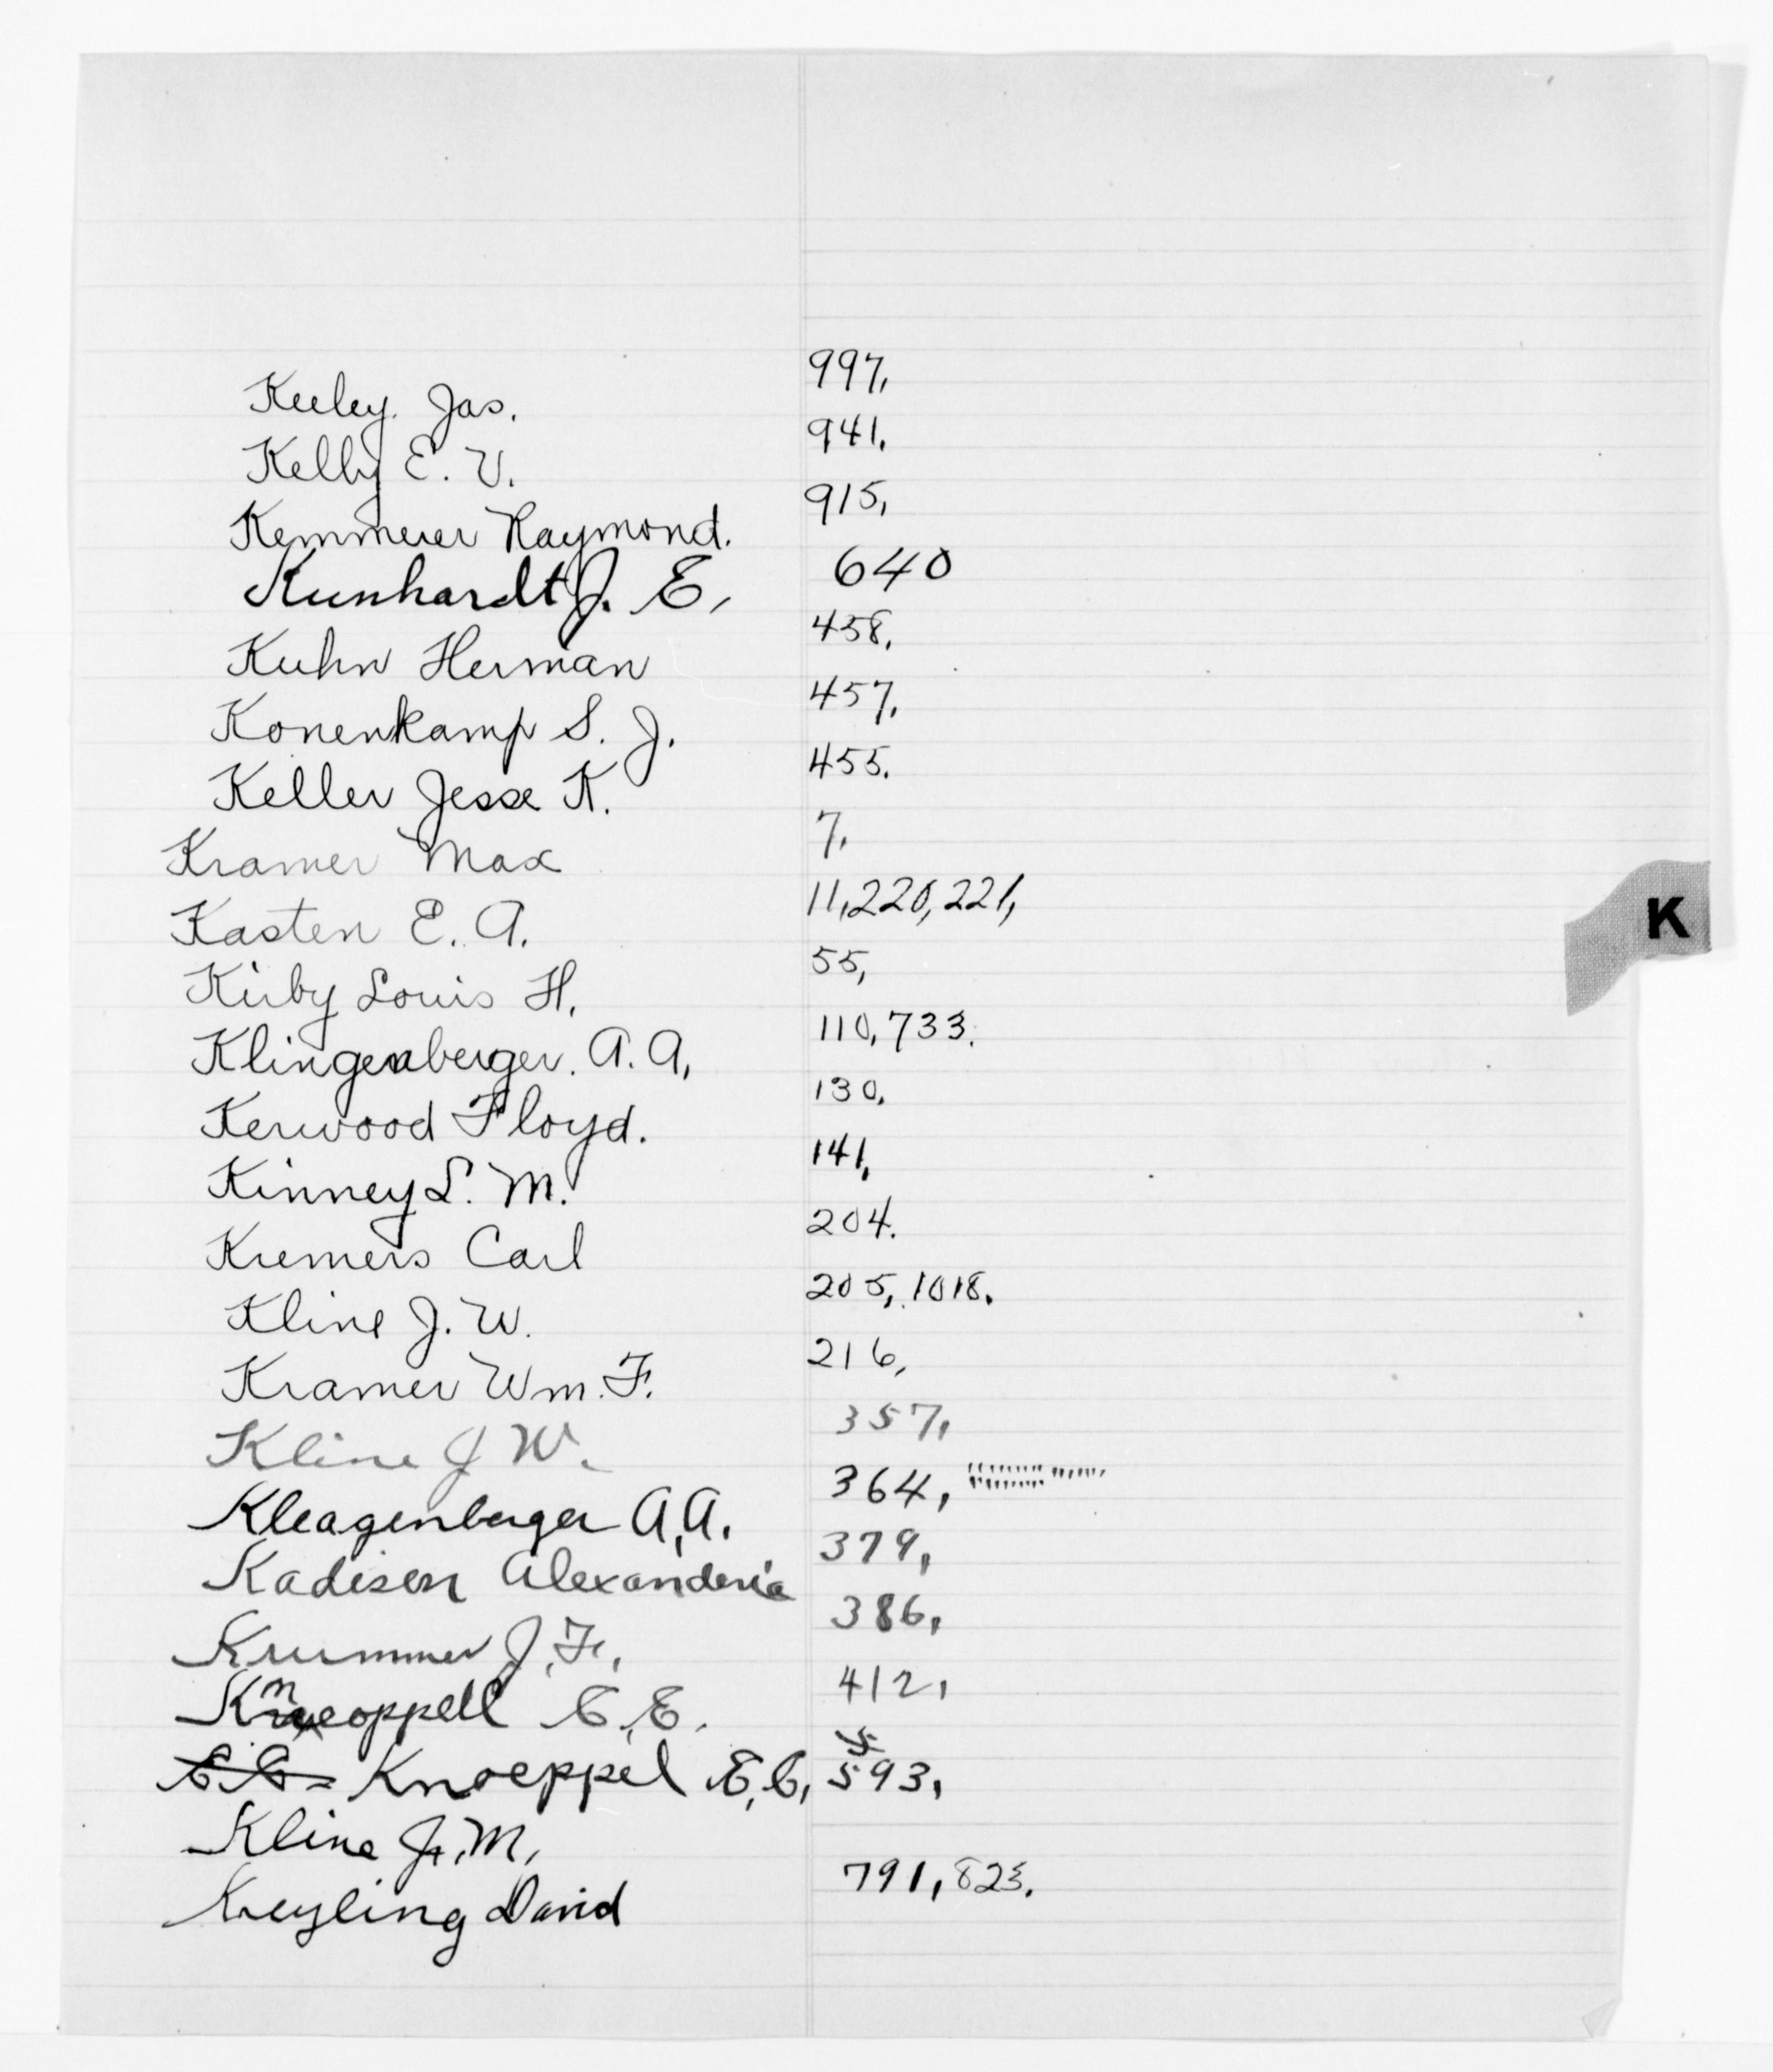 Keeley Jas. 997,
Kelly E. V. 941,
Kemmerer Raymond. 915,
Kunhardt J. E, 640
Kuhn Herman 458,
Konenkamp S. J. 457,
Keller Jesse K. 455.
Kramer Max 7,
Kasten E. A. 11,220,221,
Kirby Louis H. 55,
Klingenberger. A. A, 110,733.
Kerwood Floyd. 130,
Kinney L. M. 141,
Kremers Carl 204.
Kline J. W. 205, 1018.
Kramer Wm. F. 216,
Kline J W. 357,
Kleagenberger A,A. 364, """"""""""""
Kadisen Alexanderia 379,
Krummer J, F, 386,
Kneoppell C, E. 412,
C C Knoeppel E, C, 593,
Kline J, M,
Keyling David 791, 823.
K